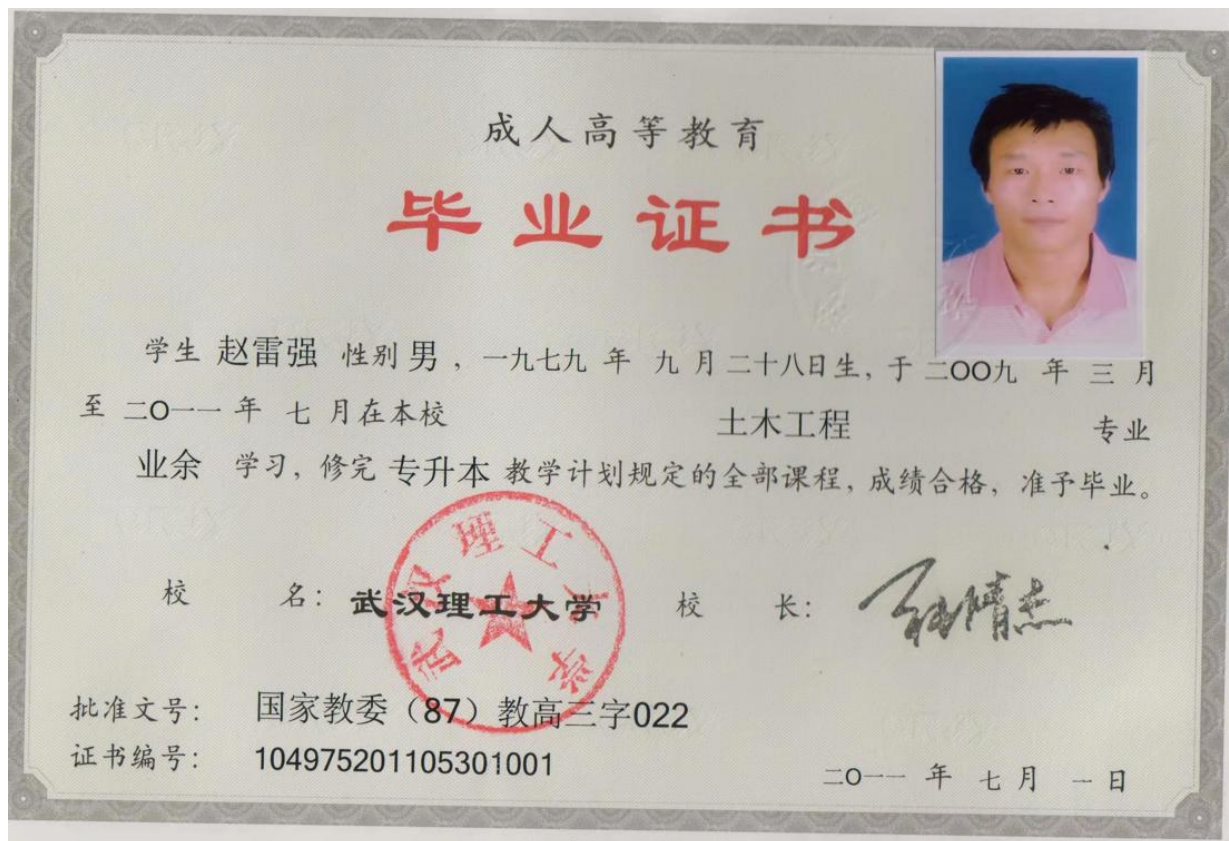 成人高等教育
毕业证书
学生 赵雷强 性别 男 ，一九七九 年 九 月 二十八日生，于 二OO九 年 三 月
至 二O一一 年 七 月在本校 土木工程 专业
业余 学习，修完 专升本 教学计划规定的全部课程，成绩合格，准予毕业。
校 名： 武汉理工大学 校 长：
武汉理工大学
批准文号： 国家教委（87）教高三字022
证书编号： 104975201105301001
二O一一 年 七 月 一 日